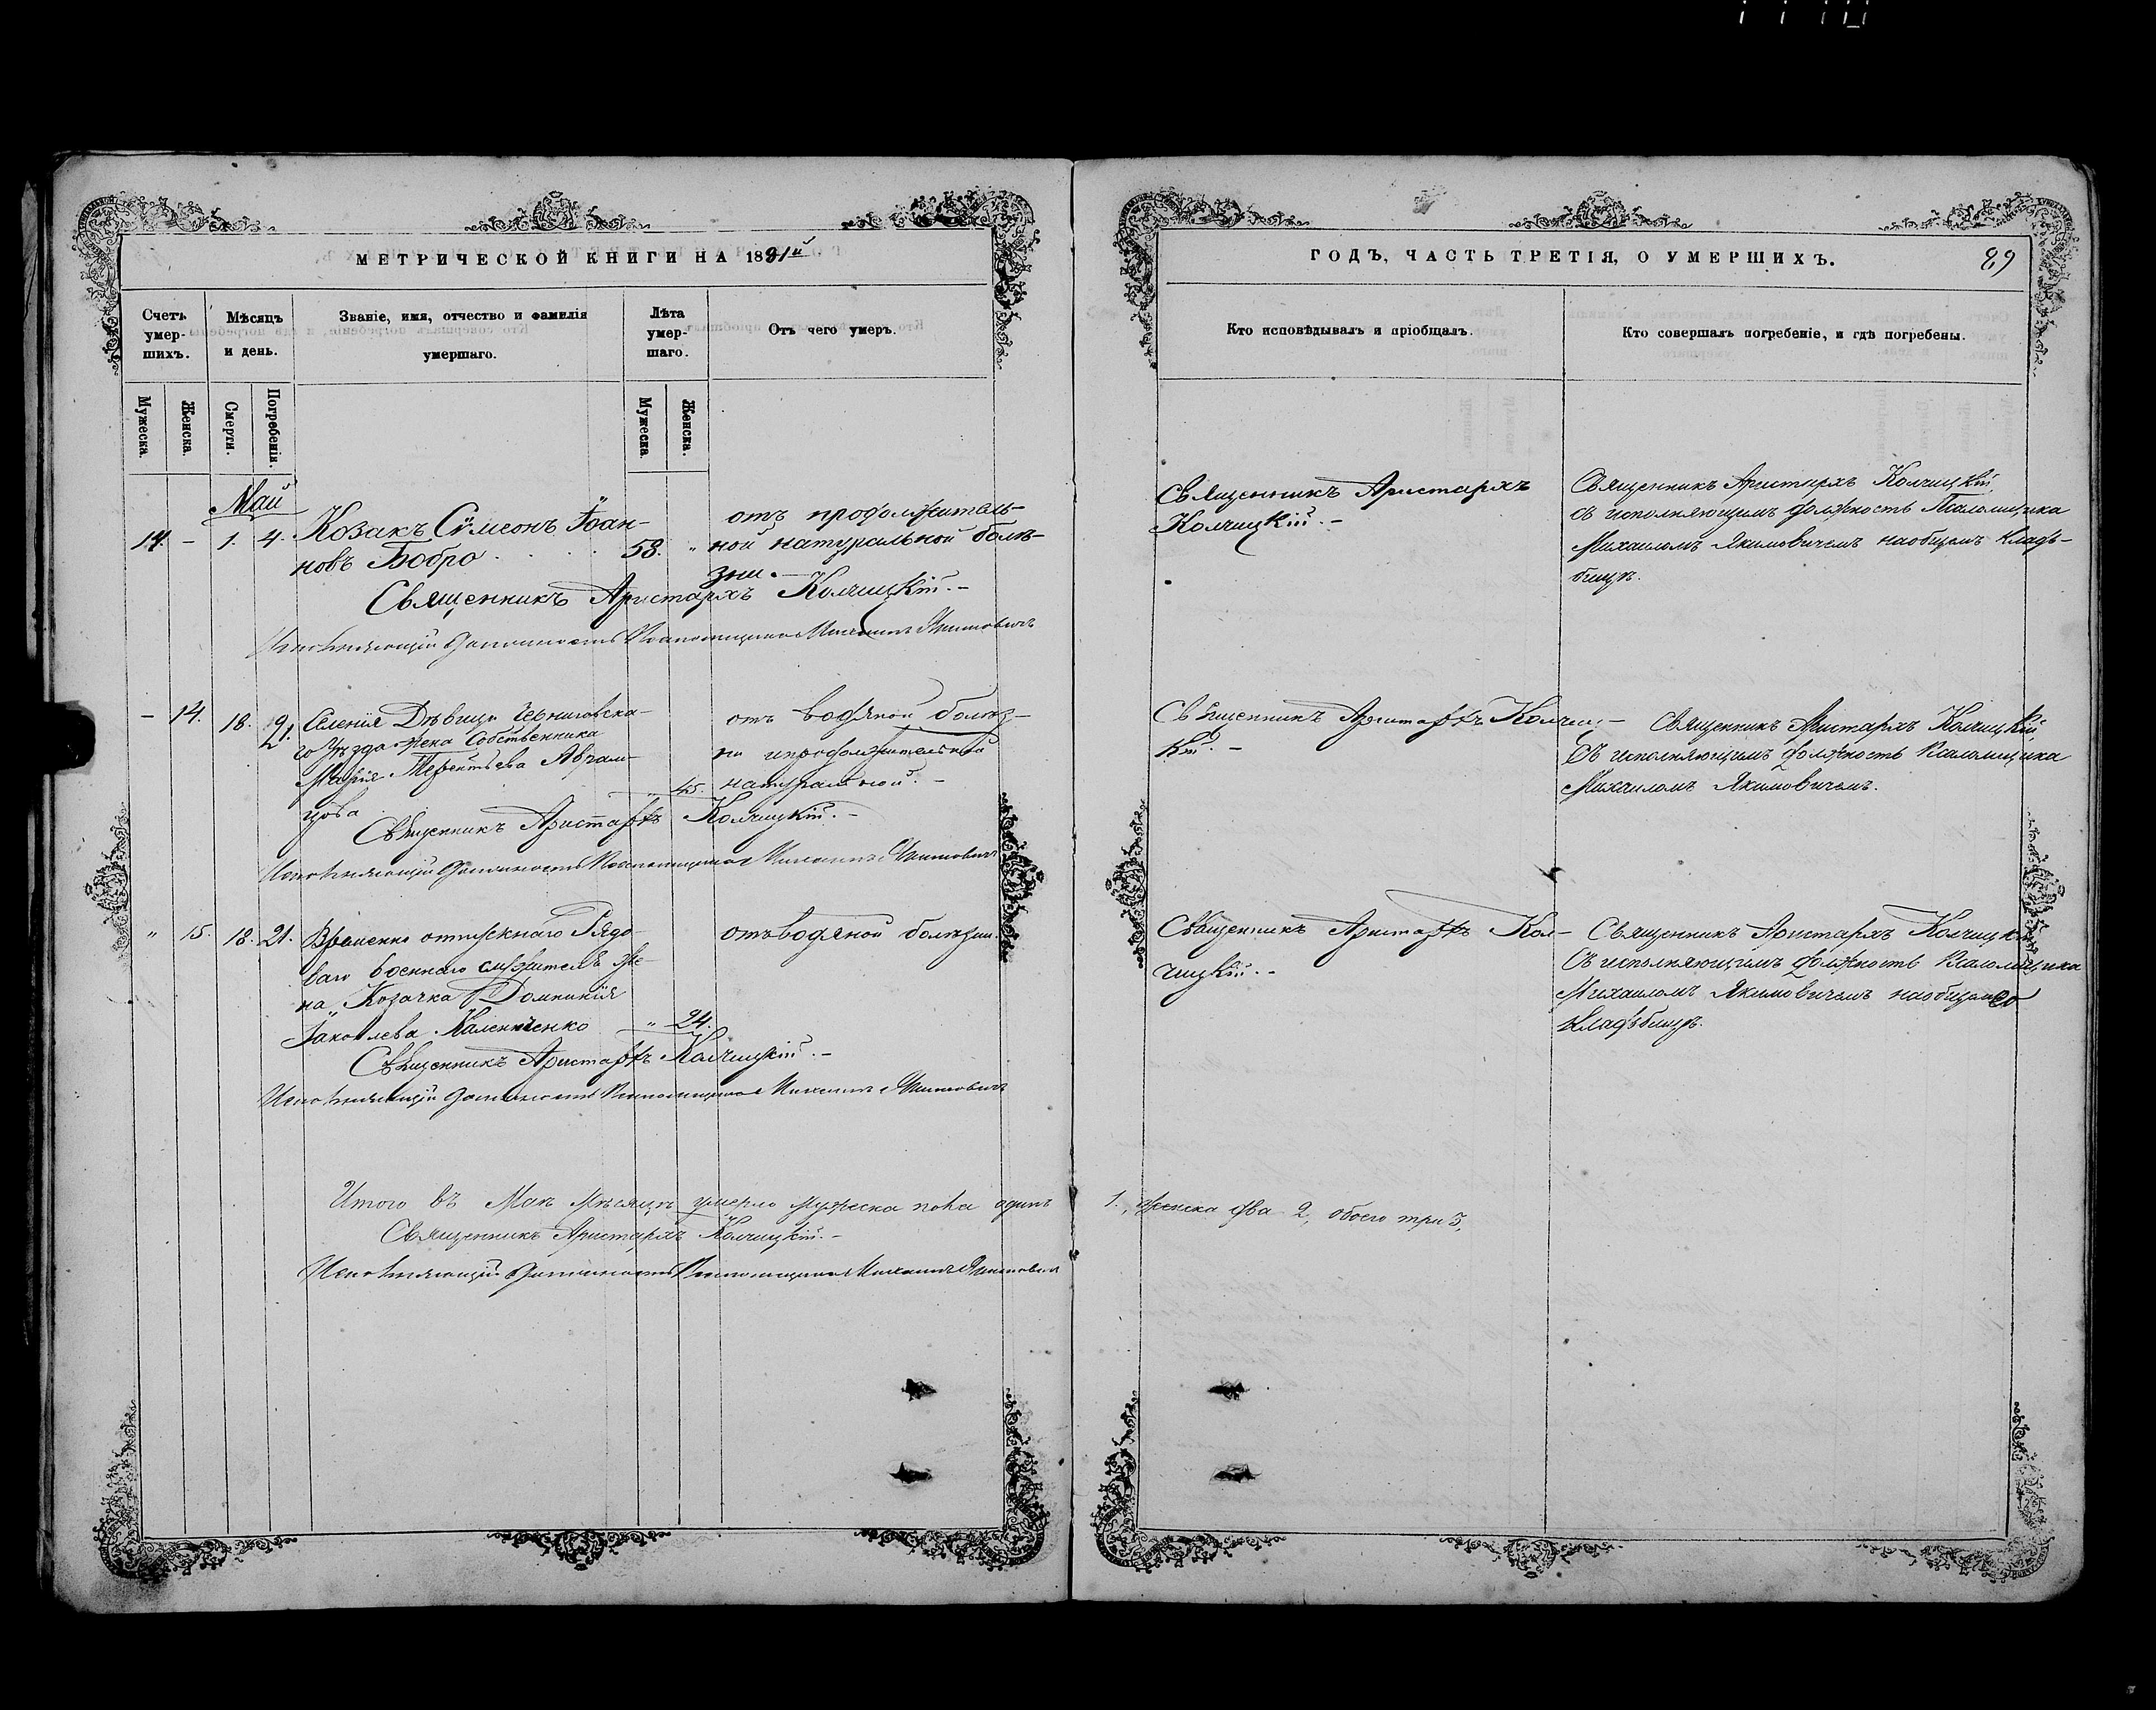 МЕТРИЧЕСКОЙ КНИГИ НА 1891й
Счетъ умер-шихъ.
Мѣсяцъ и день.
Званіе, имя, отчество и фамилія умершаго.
Лѣта умер-шаго.
Отъ чего умеръ.
Мужеска.
Женска.
Смерти.
Погребенія.
Мужеска.
Женска.
Май
14. – 1. 4. Козакъ Сѵмеонъ Іоан-
новъ Бобро 58. " 
отъ продолжитель-
ной натуральной болѣ-
зни.
Священникъ Аристархъ Колчицкій.–
Исполняющій должность Псаломщика Михаилъ Якимовичъ
– 14. 18. 21. Селенія Дѣвицы Черниговска-
го уѣзда жена Собственника
Марія Терентьева Абрам-
цова " 45.
отъ водяной болѣз-
ни и продолжительной
натуральной.–
Священникъ Аристархъ Колчицкій.–
Исполняющій должность Псаломщика Михаилъ Якимовичъ
" 15. 18. 21. Временно отпускнаго Рядо-
ваго военнаго служителя же-
на, Козачка Домникія
Іаковлева " 24.
отъ водяной болѣзни.
Священникъ Аристархъ Колчицкій.–
Исполняющій должность Псаломщика Михаилъ Якимовичъ
Итого въ Маѣ мѣсяцѣ умерло мужеска пола одинъ
Священникъ Аристархъ Колчицкій.–
Исполняющій должность Псаломщика Михаилъ Якимовичъ
ГОДЪ, ЧАСТЬ ТРЕТІЯ, О УМЕРШИХЪ.
89
Кто исповѣдывалъ и пріобщалъ.
Кто совершалъ погребеніе, и гдѣ погребены.
Священникъ Аристархъ
Колчицкій.–
Священникъ Аристархъ Колчицкій
съ исполняющимъ должность Псаломщика
Михаиломъ Якимовичемъ на общемъ Кладъ-
бищѣ.
Священникъ Аристархъ Колчиц-
кій.–
Священникъ Аристархъ Колчицкій
Съ исполняющимъ должность Псаломщика
Михаиломъ Якимовичемъ.
Священникъ Аристархъ Кол-
чицкій.–
Священникъ Аристархъ Колчицкій
Съ исполняющимъ должность Псаломщика
Михаиломъ Якимовичемъ на общемъ
Кладъбищѣ.
1., женска два 2., обоего три 3,